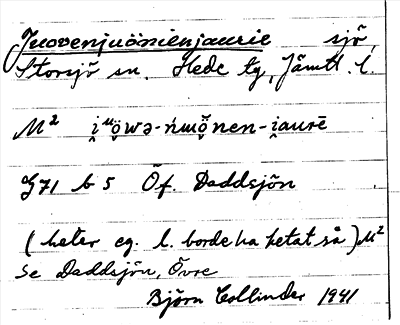 Juovenjuönienjaurie sjö,
Storsjö sn. Hede tg, Jämtl. l.
M² i̯ᵘö̭wə-ńuö̭̆nen-i̯aurē
G71 b 5 Öf. Daddsjön
(heter eg. l. borde ha hetat så) M²
Se Daddsjön, Övre
Björn Collinder 1941